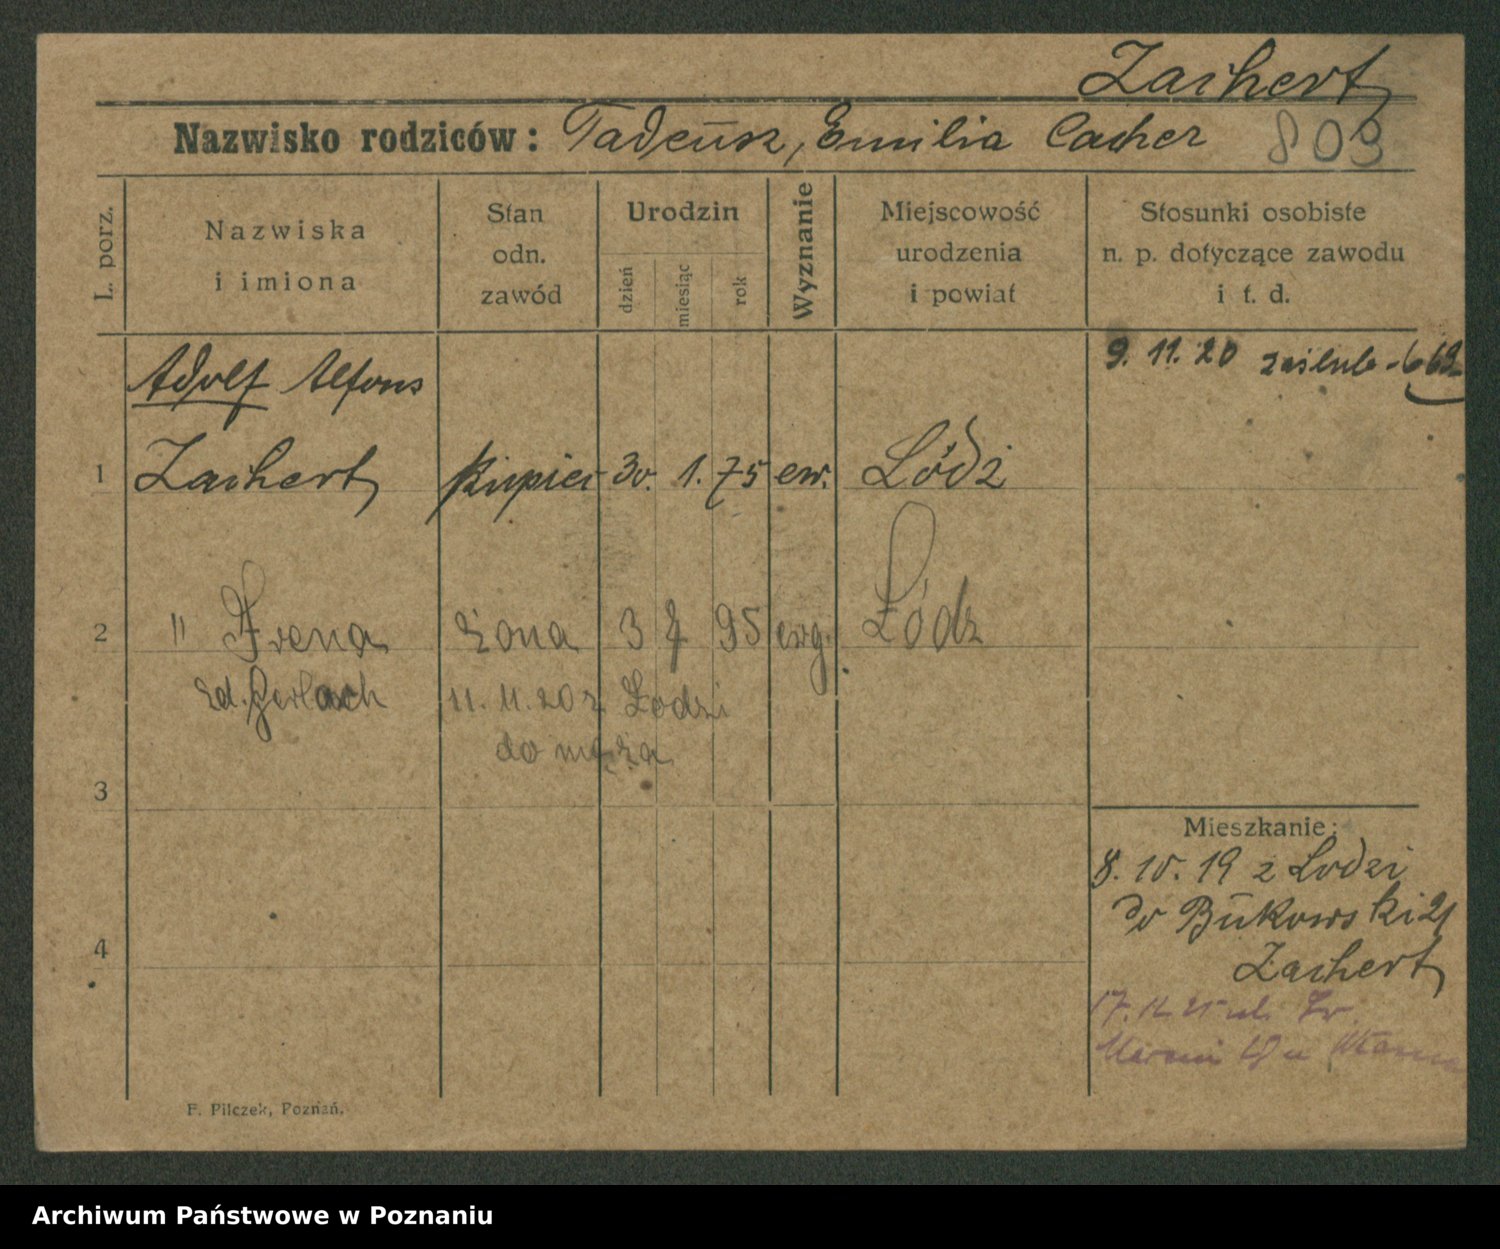 Zachert
Nazwisko rodziców: Tadeusz, Emilia Cacher 809
L. porz.
Nazwiska
i imiona
Stan
odn.
zawód
Urodzin
dzień
miesiąc
rok
Wyznanie
Miejscowość
urodzenia
i powiat
Stosunki osobiste
n. p. dotyczące zawodu
i t. d.
Adolf Alfons
9. 11. 20 zaślub.
1 Zachert kupiec 30. 1. 75 ew. Łódź
2 " Irena żona 3 7 95 ewg. Łódz
zd. Gerlach 11. 11. 20 z Łodzi
do męża
3
Mieszkanie:
8. 10. 19 z Lodzi
do Bukowski 21
4
Zachert
17.
F. Pilczek, Poznań.
Archiwum Państwowe w Poznaniu